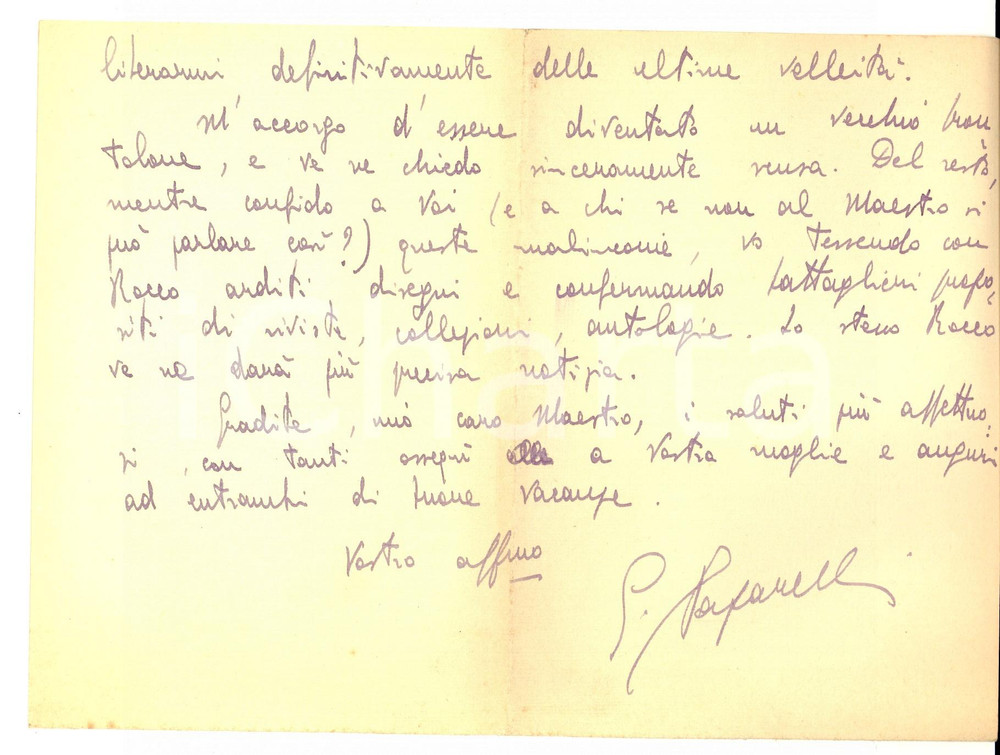 liberarmi definitivamente delle ultime velleità.
M'accorgo d'essere diventato un vecchio bron
tolone, e ve ne chiedo sinceramente scusa. Del resto,
mentre confido a Voi (e a chi se non al Maestro si
può parlare così?) queste malinconie, vo tessendo con
Rocco arditi disegni e confermando battaglieri propo-
siti di riviste, collezioni, antologie. Lo stesso Rocco
ve ne darà più precisa notizia.
Gradite, mio caro Maestro, i saluti più affettuo-
si, con tanti ossequi a Vostra moglie e auguri
ad entrambi di buone vacanze.
Vostro affmo